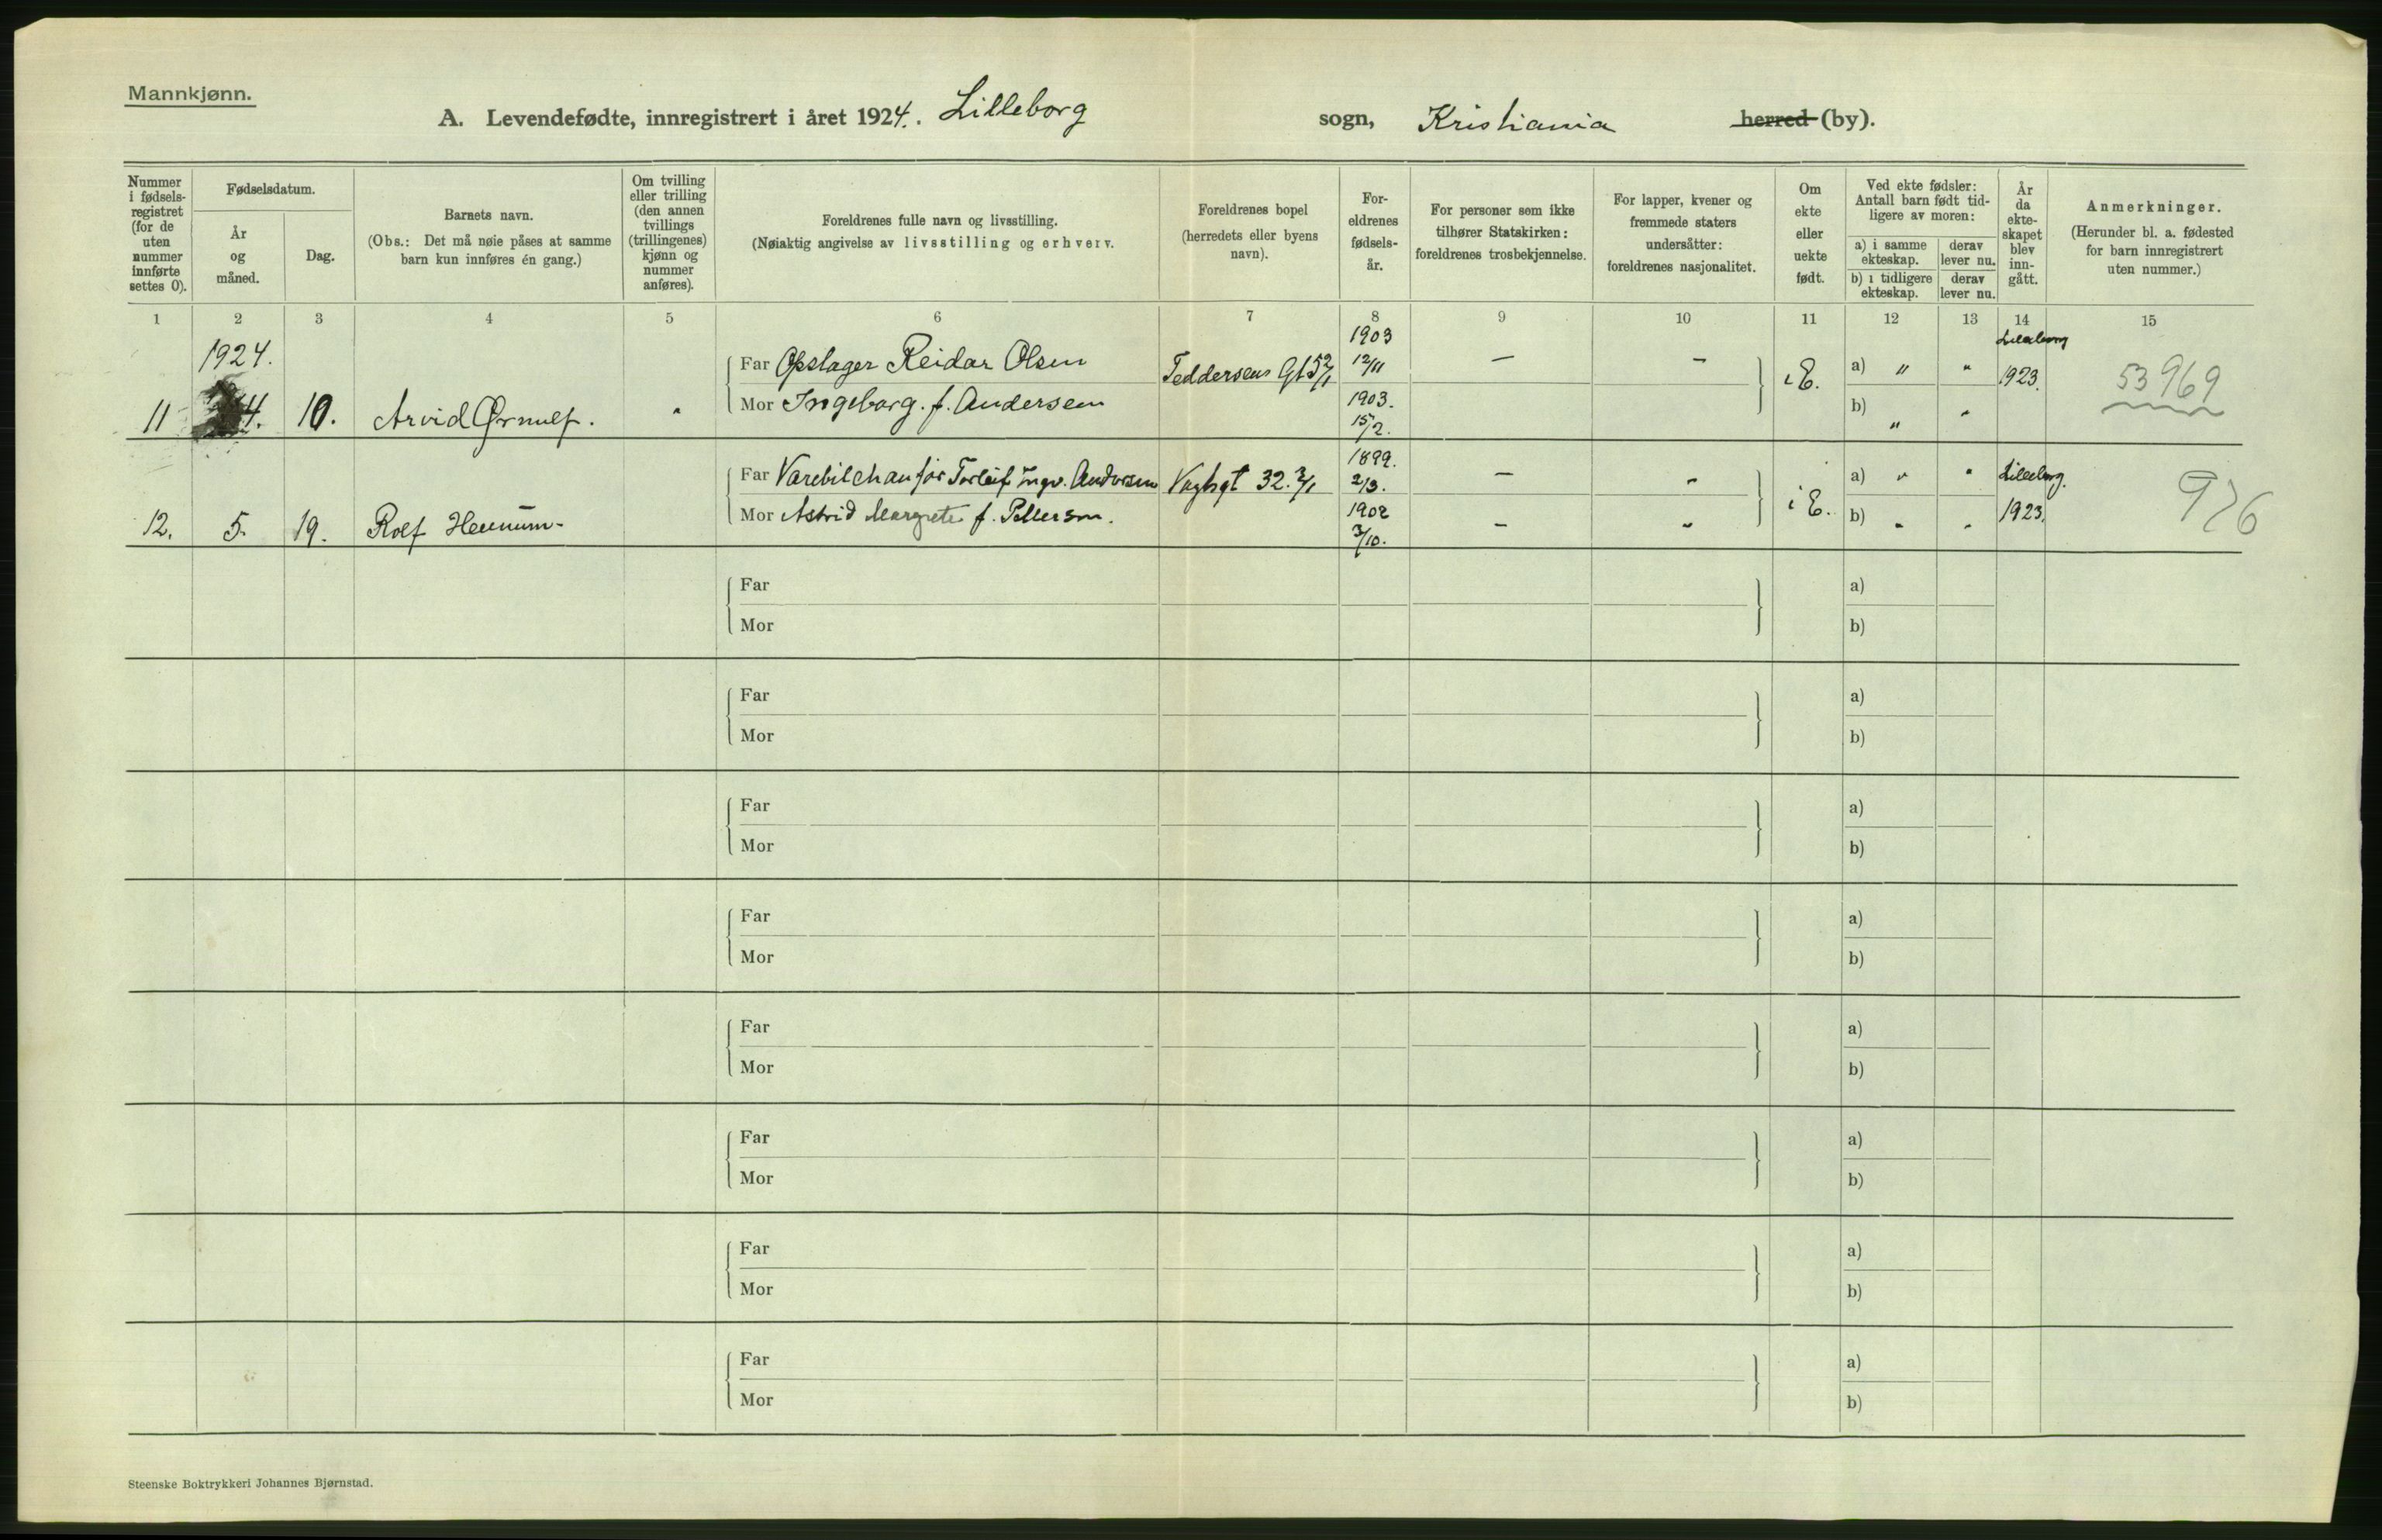 Mannkjønn.
A. Levendefødte, innregistrert i året 1924. Lilleborg sogn, Kristiania herred (by).
Nummer i fødsels-registret (for de uten nummer innførte settes 0).
Fødselsdatum.
År og måned.
Dag.
Barnets navn.
(Obs.: Det må nøie påses at samme barn kun innføres én gang.)
Om tvilling eller trilling (den annen tvillings (trillingenes) kjønn og nummer anføres).
Foreldrenes fulle navn og livsstilling.
(Nøiaktig angivelse av livsstilling og erhverv.
Foreldrenes bopel (herredets eller byens navn).
For-eldrenes fødsels-år.
For personer som ikke tilhører Statskirken: foreldrenes trosbekjennelse.
For lapper, kvener og fremmede staters undersåtter: foreldrenes nasjonalitet.
Om ekte eller uekte født.
Ved ekte fødsler: Antall barn født tid-ligere av moren:
a) i samme ekteskap.
derav lever nu.
b) i tidligere ekteskap.
derav lever nu.
År da ekte-skapet blev inn-gått.
Anmerkninger.
(Herunder bl. a. fødested for barn innregistrert uten nummer.)
1 2 3 4 5 6 7 8 9 10 11 12 13 14 15
1924.
11 4. 10. Arvid Ørnulf. "
Far Opslager Reidar Olsen Teddersens Gt 5 2/1 1903 12/11 — —
Mor Ingeborg. f. Andersen 1903. 15/2.
i E. a) " " b) " " Lilleborg 1923. 53969
12. 5. 19. Rolf Hennum-
Far Varebilchaufør Torleif Ingv. Andersen Vogtsgt 32. 3/1 1899. 2/3. — "
Mor Astrid Margrete f. Pettersen. 1902 3/10. — "
i E. a) " " b) " " Lilleborg. 1923. 976
Far a)
Mor b)
Far a)
Mor b)
Far a)
Mor b)
Far a)
Mor b)
Far a)
Mor b)
Far a)
Mor b)
Far a)
Mor b)
Far a)
Mor b)
Steenske Boktrykkeri Johannes Bjørnstad.